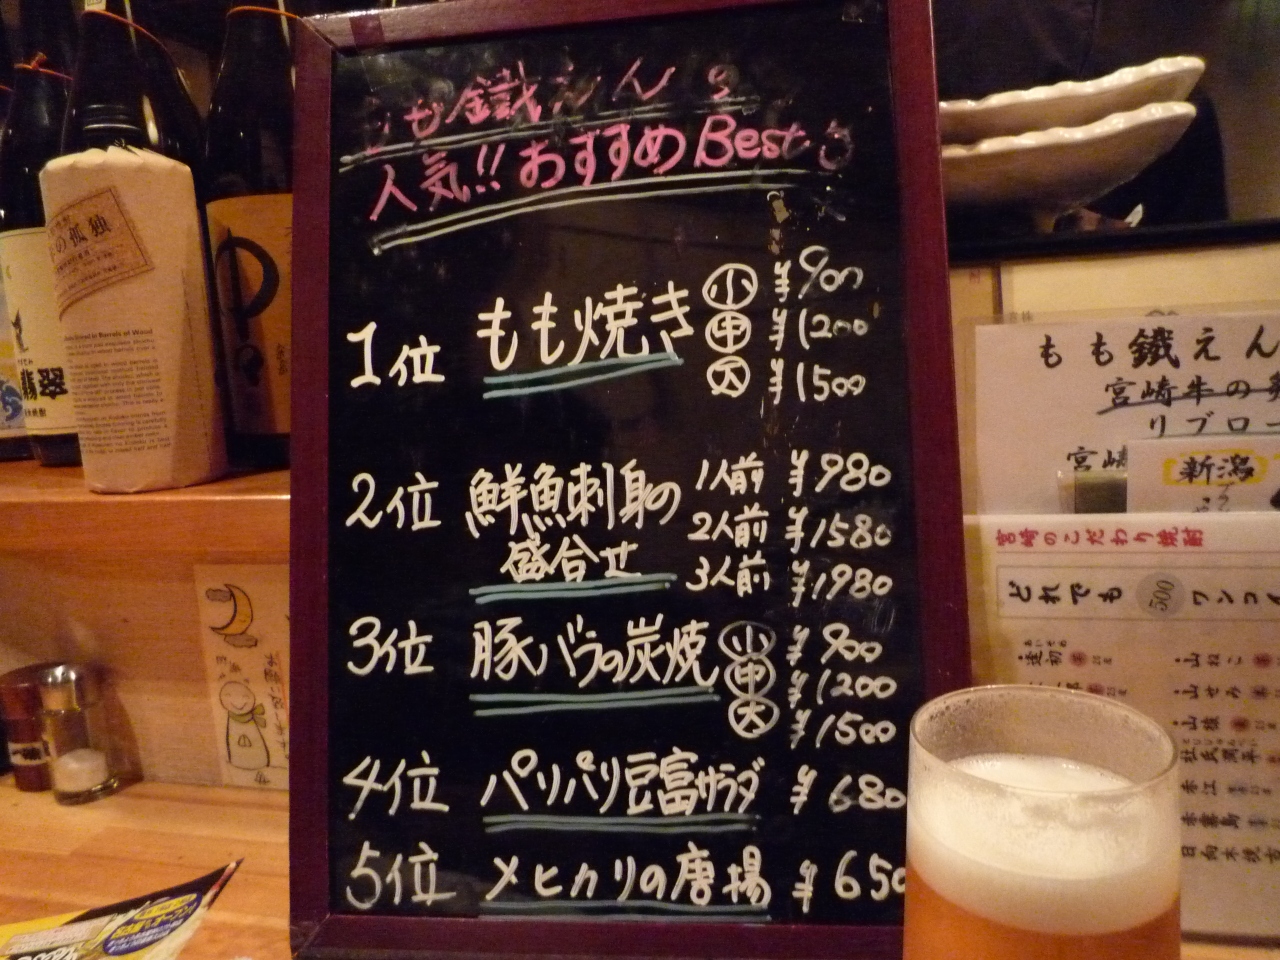 もも鐵えんの
人気!!おすすめBest5
1位 もも焼き 小 ¥900
中 ¥1200
大 ¥1500
2位 鮮魚刺身の盛合せ 1人前 ¥980
2人前 ¥1580
3人前 ¥1980
3位 豚バラの炭焼 小 ¥900
中 ¥1200
大 ¥1500
4位 パリパリ豆富サラダ ¥680
5位 メヒカリの唐揚 ¥650
の孤独
翡翠
もも鐵えん
宮崎牛の
リブロー
宮崎
新潟
宮崎のこだわり焼酎
どれでも 500 ワンコイ
逢初
山ねこ
山せみ
山猿
杜氏潤平
赤江
赤霧島
日向木挽